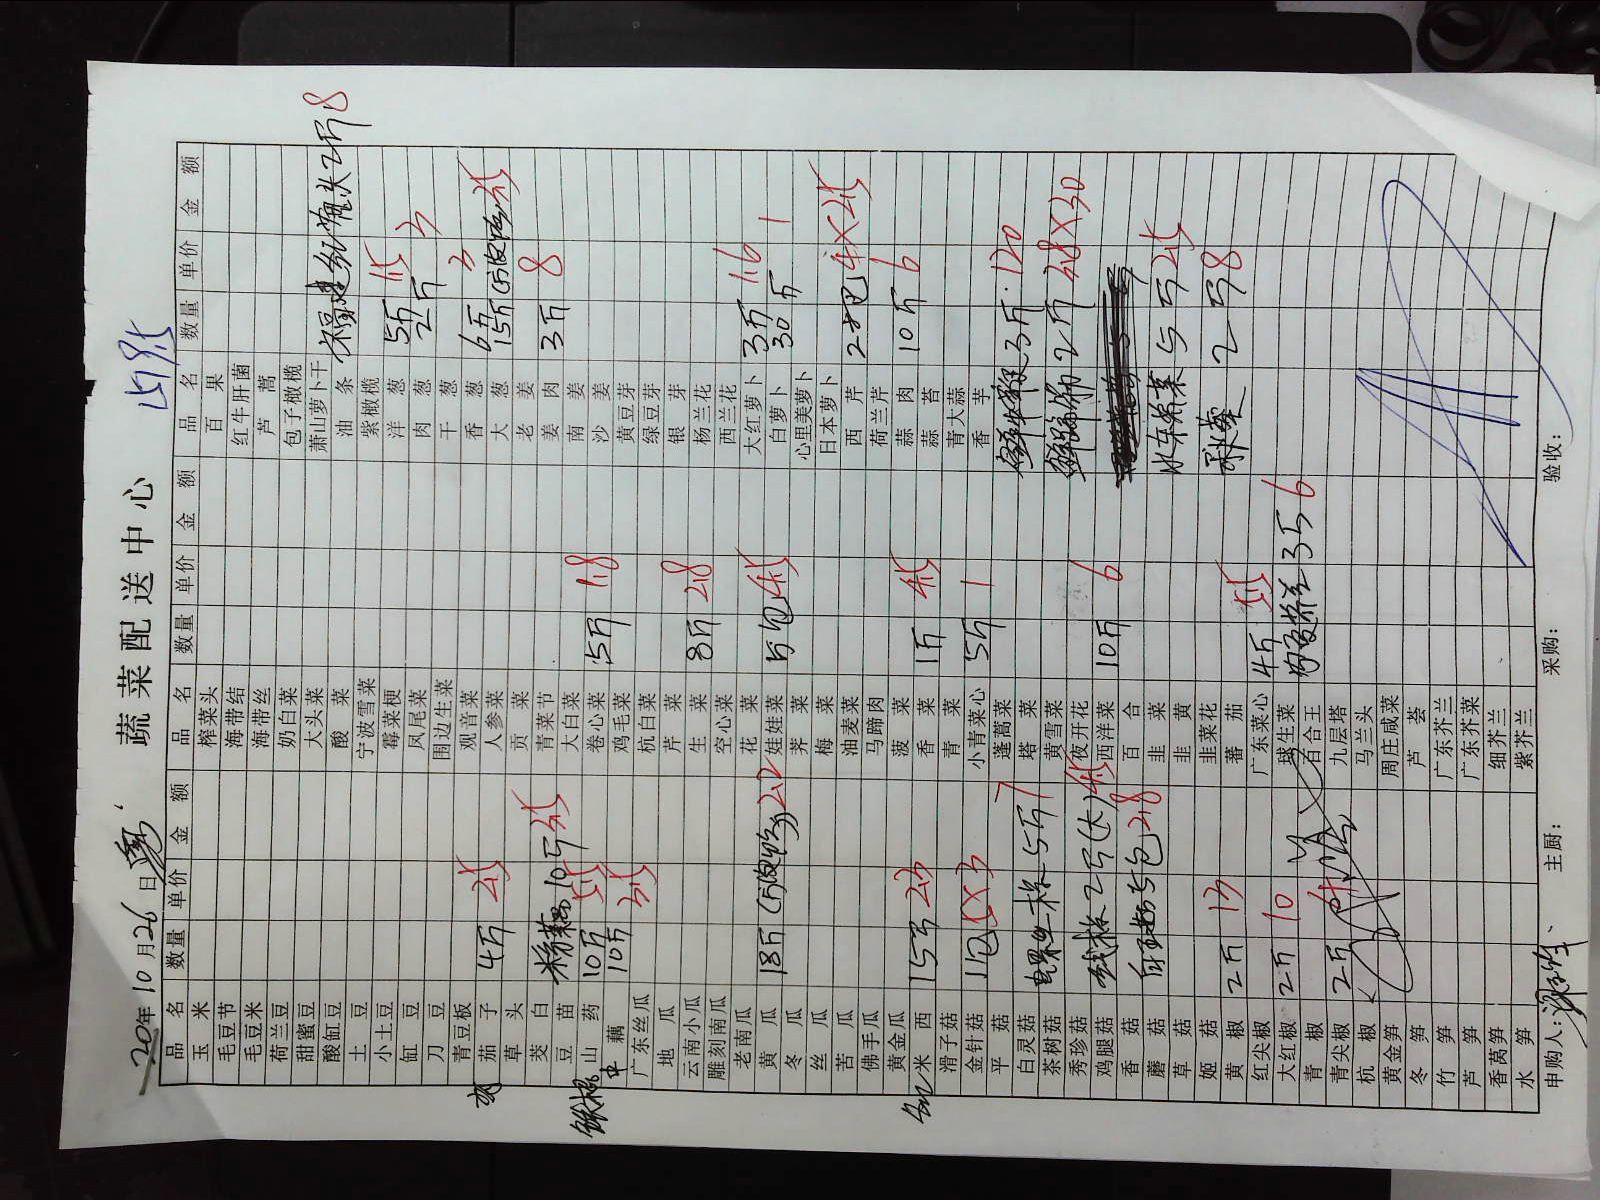 蔬菜配送中心
10月26日
品名 数量 单价 金额 品名 数量 单价 金额 品名 数量 单价 金额
玉米 榨菜头 百果
毛豆节 海带结 红牛肝菌
毛豆米 海带丝 芦蒿
荷兰豆 奶白菜 包子橄榄
甜蜜豆 大头菜 萧山萝卜干
酸缸豆 酸菜 油条 2斤 8
土豆 宁波雪菜 紫橄榄
小土豆 霉菜梗 洋葱 5斤 1.5
缸豆 凤尾菜 肉葱 2斤 3
刀豆 围边生菜 干葱
青豆板 观音菜 香葱 6斤 3
茄子 4斤 2.5 人参菜 大葱 15斤 3.5
草头 贡菜 老姜
茭白 青菜节 姜肉 3斤 8
豆苗 10斤 大白菜 南姜
山药 10斤 5.5 卷心菜 5斤 1.8 沙姜
藕 10斤 3.5 鸡毛菜 黄豆芽
广东丝瓜 杭白菜 绿豆芽
地瓜 芹菜 银芽
云南小瓜 生菜 8斤 2.8 杨兰花
雕刻南瓜 空心菜 西兰花
老南瓜 花菜 大红萝卜 3斤 1.6
黄瓜 18斤 2.2 娃娃菜 5包 4.5 白萝卜 30斤 1
冬瓜 荠菜 心里美萝卜
丝瓜 梅菜 日本萝卜
苦瓜 油麦菜 西芹 2把 4×2.5
佛手瓜 马蹄肉 荷兰芹
黄金瓜 菠菜 蒜肉 10斤 6
米西 15斤 2.3 香菜 1斤 4.5 蒜苔
滑子菇 青菜 青大蒜
金针菇 1包 小青菜心 5斤 1 香芋
平菇 蓬蒿菜 3斤 120
白灵菇 5斤 7 塔菜
茶树菇 黄雪菜 2斤 2.8×30
秀珍菇 2斤(大) 4.5 夜开花
鸡腿菇 西洋菜 10斤 6
香菇 5包 2.8 百合
蘑菇 韭菜 水东芥菜 5斤 2.5
草菇 韭黄
姬菇 韭菜花 秋葵 2斤 8
黄椒 2斤 13 蕃茄
红尖椒 广东菜心 4斤 5.5
大红椒 2斤 10 球生菜 3斤 6
青椒 百合王
青尖椒 2斤 九层塔
杭椒 马兰头
黄金笋 周庄咸菜
冬笋 芦荟
竹笋 广东芥兰
芦笋 广东芥菜
香莴笋 细芥兰
水笋 紫芥兰
申购人: 主厨: 采购: 验收: